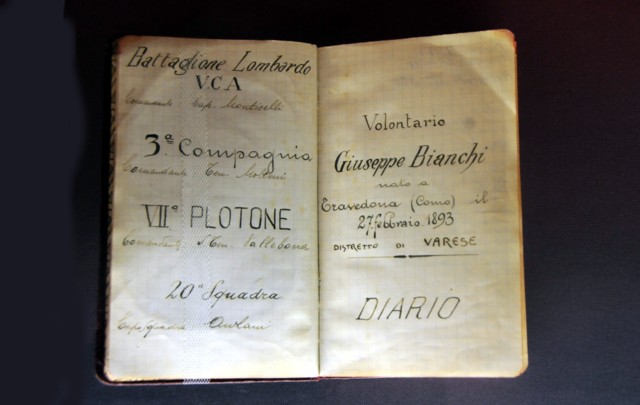 Battaglione Lombardo
V.C.A
Comandante Cap. Monticelli
3ª Compagnia
Comandante Ten.
VIIº PLOTONE
Comandante S.Ten. Vallebona
20ª Squadra
Capo squadra
Volontario
Giuseppe Bianchi
nato a
Travedona (Como) il
27 febbraio 1893
DISTRETTO DI VARESE
DIARIO